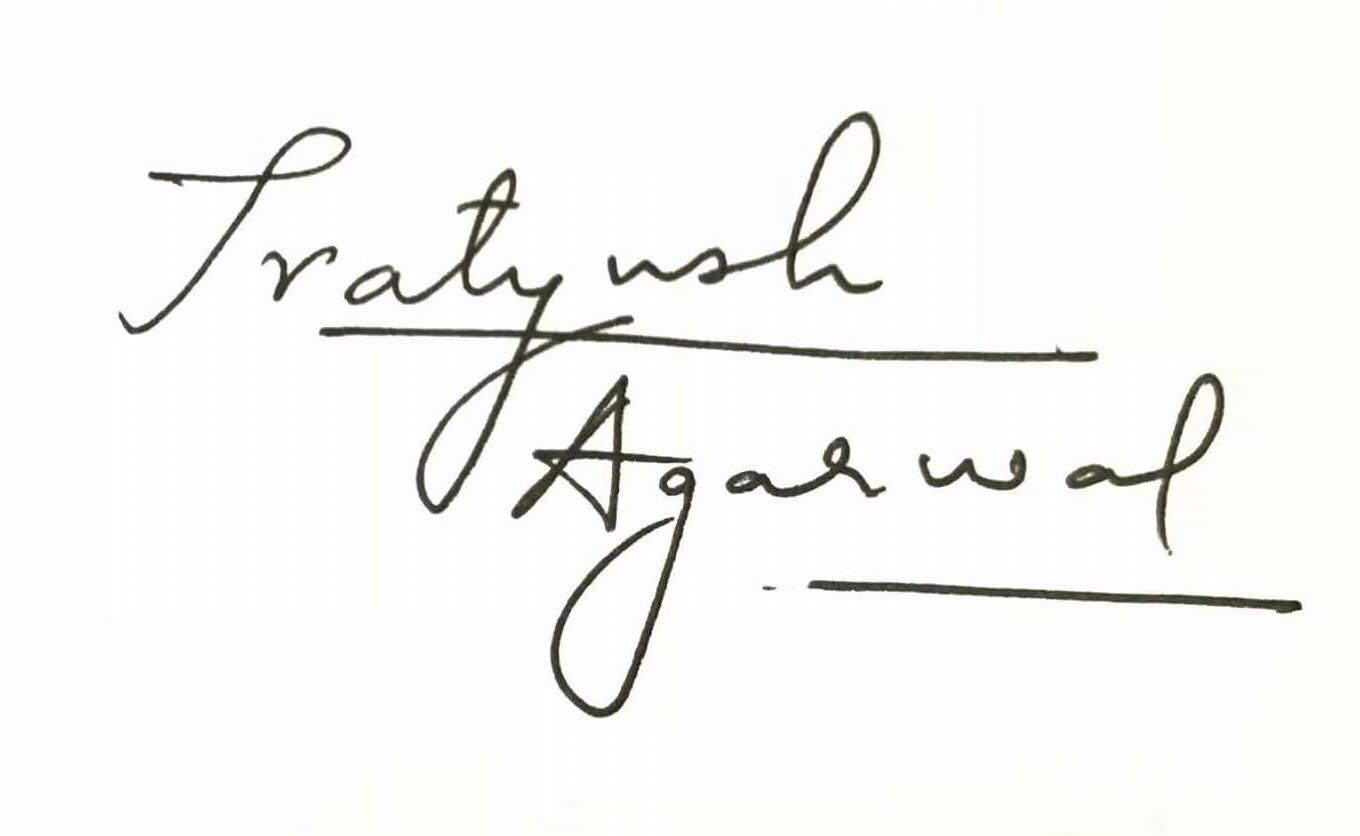 Pratyush
Agarwal